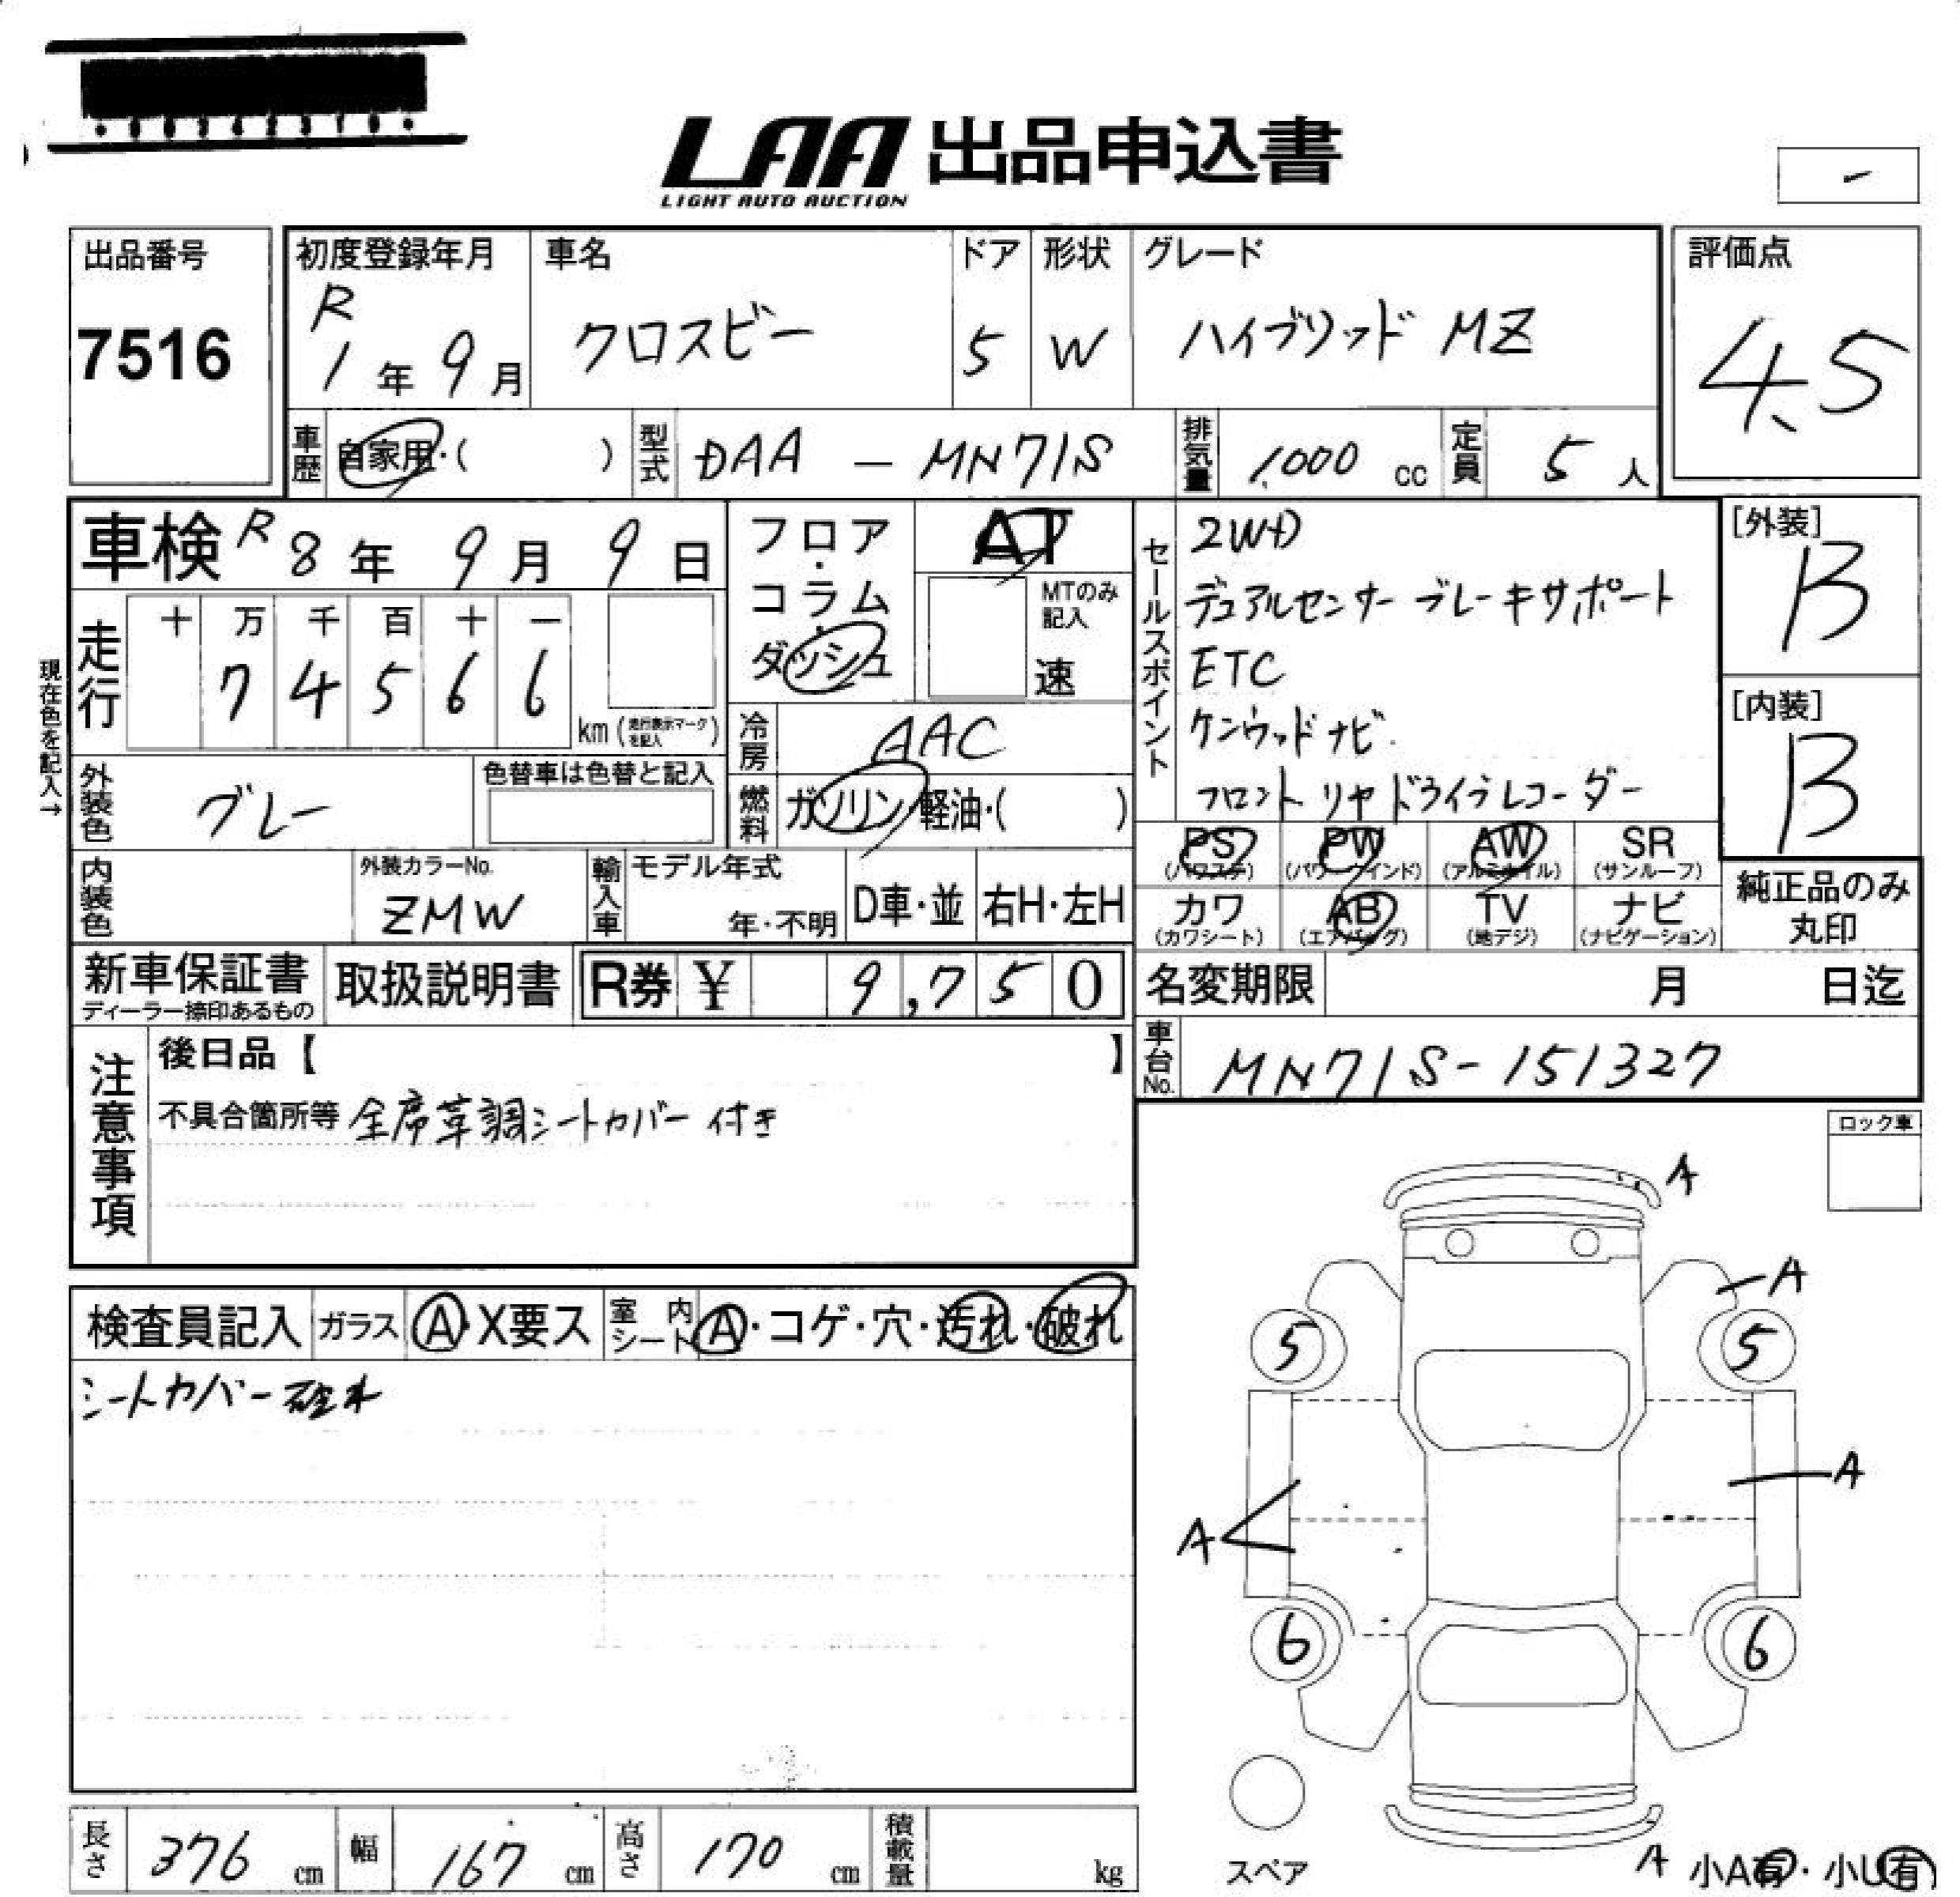 LAA 出品申込書
LIGHT AUTO AUCTION
-
出品番号
7516
初度登録年月
R
1年 9月
車名
クロスビー
ドア
5
形状
W
グレード
ハイブリッド MZ
評価点
4.5
車歴
自家用・( )
型式
DAA — MN71S
排気量
1,000 cc
定員
5 人
車検 R 8年 9月 9日
フロア・コラム・ダッシュ
AT
MTのみ記入
速
セールスポイント
2WD
デュアルセンサー ブレーキサポート
ETC
ケンウッドナビ
フロント リヤ ドライブレコーダー
[外装]
B
[内装]
B
現在色を記入→
走行
十 万 千 百 十 一
7 4 5 6 6
km (走行表示マークを記入)
冷房
AAC
燃料
ガソリン・軽油・( )
外装色
グレー
色替車は色替と記入
PS
(パワステ)
PW
(パワーウインド)
AW
(アルミホイル)
SR
(サンルーフ)
カワ
(カワシート)
AB
(エアバッグ)
TV
(地デジ)
ナビ
(ナビゲーション)
純正品のみ
丸印
内装色
外装カラーNo.
ZMW
輸入車
モデル年式
年・不明
D車・並
右H・左H
新車保証書
ディーラー捺印あるもの
取扱説明書
R券 ¥ 9,750
名変期限 月 日迄
車台No.
MN71S-151327
注意事項
後日品【 】
不具合箇所等 全席革調シートカバー付き
ロック車
検査員記入
ガラス
A・X要ス
室内シート
A・コゲ・穴・汚れ・破れ
シートカバー破れ
A
A
5
5
A
A
6
6
スペア
A
小A有・小U有
長さ
376 cm
幅
167 cm
高さ
170 cm
積載量
kg